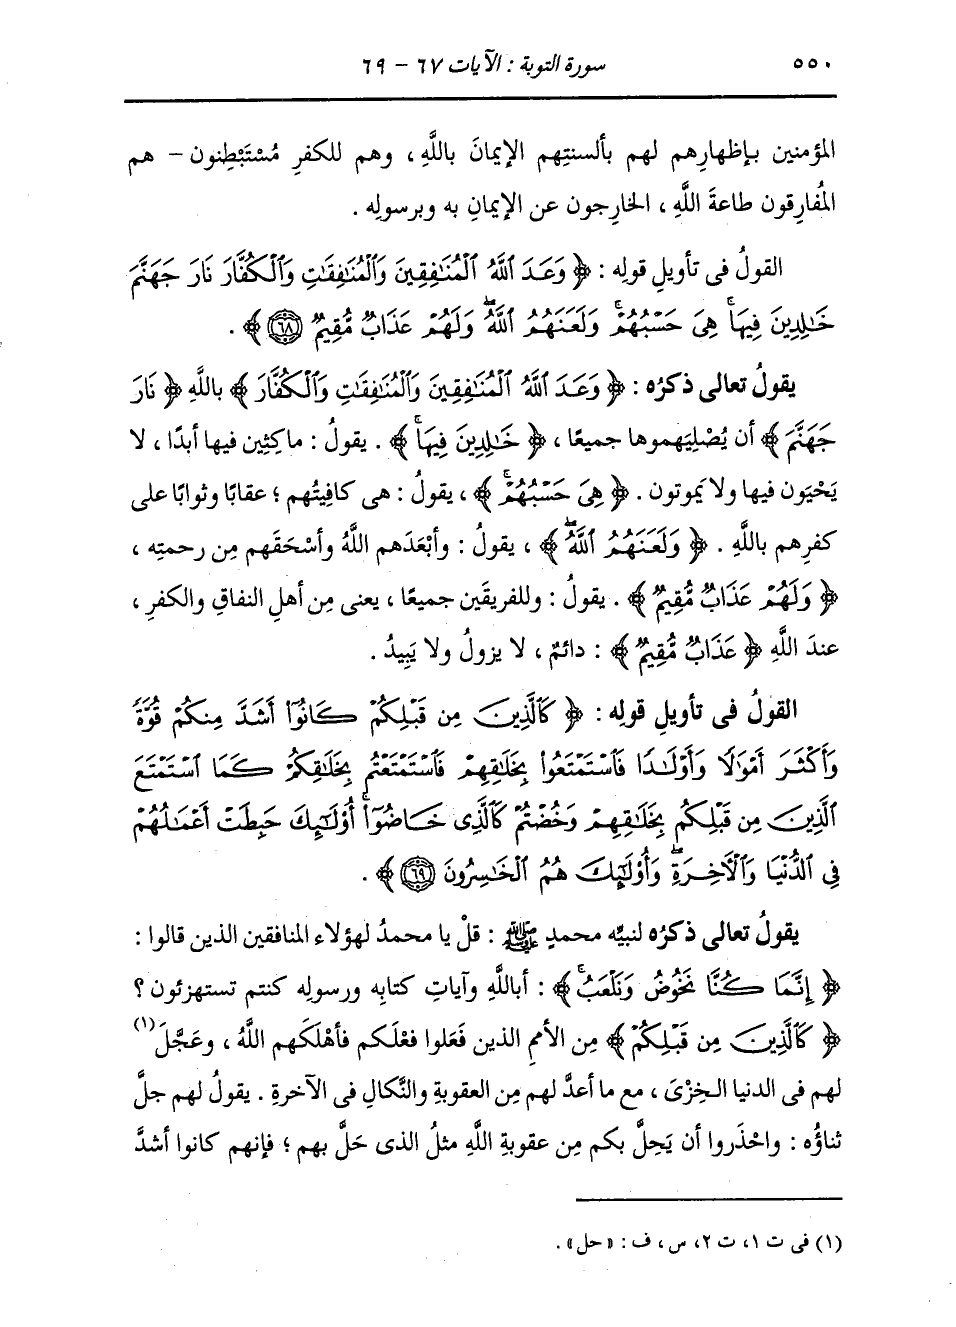 ٥٥٠ سورة التوبة : الآيات ٦٧ - ٦٩
المؤمنين بإظهارِهم لهم بألسنتِهم الإيمانَ باللَّهِ ، وهم للكفرِ مُسْتَبْطِنون - هم
المُفارِقون طاعةَ اللَّهِ ، الخارِجون عن الإيمانِ به وبرسولِه .
القولُ فى تأويلِ قولِه : ﴿ وَعَدَ ٱللَّهُ ٱلْمُنَٰفِقِينَ وَٱلْمُنَٰفِقَٰتِ وَٱلْكُفَّارَ نَارَ جَهَنَّمَ
خَٰلِدِينَ فِيهَاۚ هِىَ حَسْبُهُمْۚ وَلَعَنَهُمُ ٱللَّهُۖ وَلَهُمْ عَذَابٌ مُّقِيمٌ ٦٨ ﴾ .
يقولُ تعالى ذكرُه : ﴿ وَعَدَ ٱللَّهُ ٱلْمُنَٰفِقِينَ وَٱلْمُنَٰفِقَٰتِ وَٱلْكُفَّارَ ﴾ باللَّهِ ﴿ نَارَ
جَهَنَّمَ ﴾ أن يُصْلِيَهموها جميعًا ، ﴿ خَٰلِدِينَ فِيهَاۚ ﴾ . يقولُ : ماكِثِين فيها أبدًا ، لا
يَحْيَون فيها ولا يموتون . ﴿ هِىَ حَسْبُهُمْۚ ﴾ ، يقولُ : هى كافِيتُهم ؛ عقابًا وثوابًا على
كفرِهم باللَّهِ . ﴿ وَلَعَنَهُمُ ٱللَّهُۖ ﴾ ، يقولُ : وأبْعَدَهم اللَّهُ وأسْحَقَهم مِن رحمتِه ،
﴿ وَلَهُمْ عَذَابٌ مُّقِيمٌ ﴾ . يقولُ : وللفريقَين جميعًا ، يعنى مِن أهلِ النفاقِ والكفرِ ،
عندَ اللَّهِ ﴿ عَذَابٌ مُّقِيمٌ ﴾ : دائمٌ ، لا يزولُ ولا يَبِيدُ .
القولُ فى تأويلِ قولِه : ﴿ كَٱلَّذِينَ مِن قَبْلِكُمْ كَانُوٓا۟ أَشَدَّ مِنكُمْ قُوَّةً
وَأَكْثَرَ أَمْوَٰلًا وَأَوْلَٰدًا فَٱسْتَمْتَعُوا۟ بِخَلَٰقِهِمْ فَٱسْتَمْتَعْتُم بِخَلَٰقِكُمْ كَمَا ٱسْتَمْتَعَ
ٱلَّذِينَ مِن قَبْلِكُم بِخَلَٰقِهِمْ وَخُضْتُمْ كَٱلَّذِى خَاضُوٓا۟ۚ أُو۟لَٰٓئِكَ حَبِطَتْ أَعْمَٰلُهُمْ
فِى ٱلدُّنْيَا وَٱلْءَاخِرَةِۖ وَأُو۟لَٰٓئِكَ هُمُ ٱلْخَٰسِرُونَ ٦٩ ﴾ .
يقولُ تعالى ذكرُه لنبيِّه محمدٍ ﷺ : قلْ يا محمدُ لهؤلاء المنافقين الذين قالوا :
﴿ إِنَّمَا كُنَّا نَخُوضُ وَنَلْعَبُۚ ﴾ : أباللَّهِ وآياتِ كتابِه ورسولِه كنتم تستهزئون ؟
﴿ كَٱلَّذِينَ مِن قَبْلِكُمْ ﴾ مِن الأممِ الذين فَعَلوا فعْلَكم فأهْلَكَهم اللَّهُ ، وعَجَّلَ (١)
لهم فى الدنيا الخِزْىَ ، مع ما أعدَّ لهم مِن العقوبةِ والنَّكالِ فى الآخرةِ . يقولُ لهم جلَّ
ثناؤُه : واحْذَروا أن يَحِلَّ بكم مِن عقوبةِ اللَّهِ مثلُ الذى حَلَّ بهم ؛ فإنهم كانوا أشدَّ
(١) فى ت ١، ت ٢، س ، ف : «حل» .